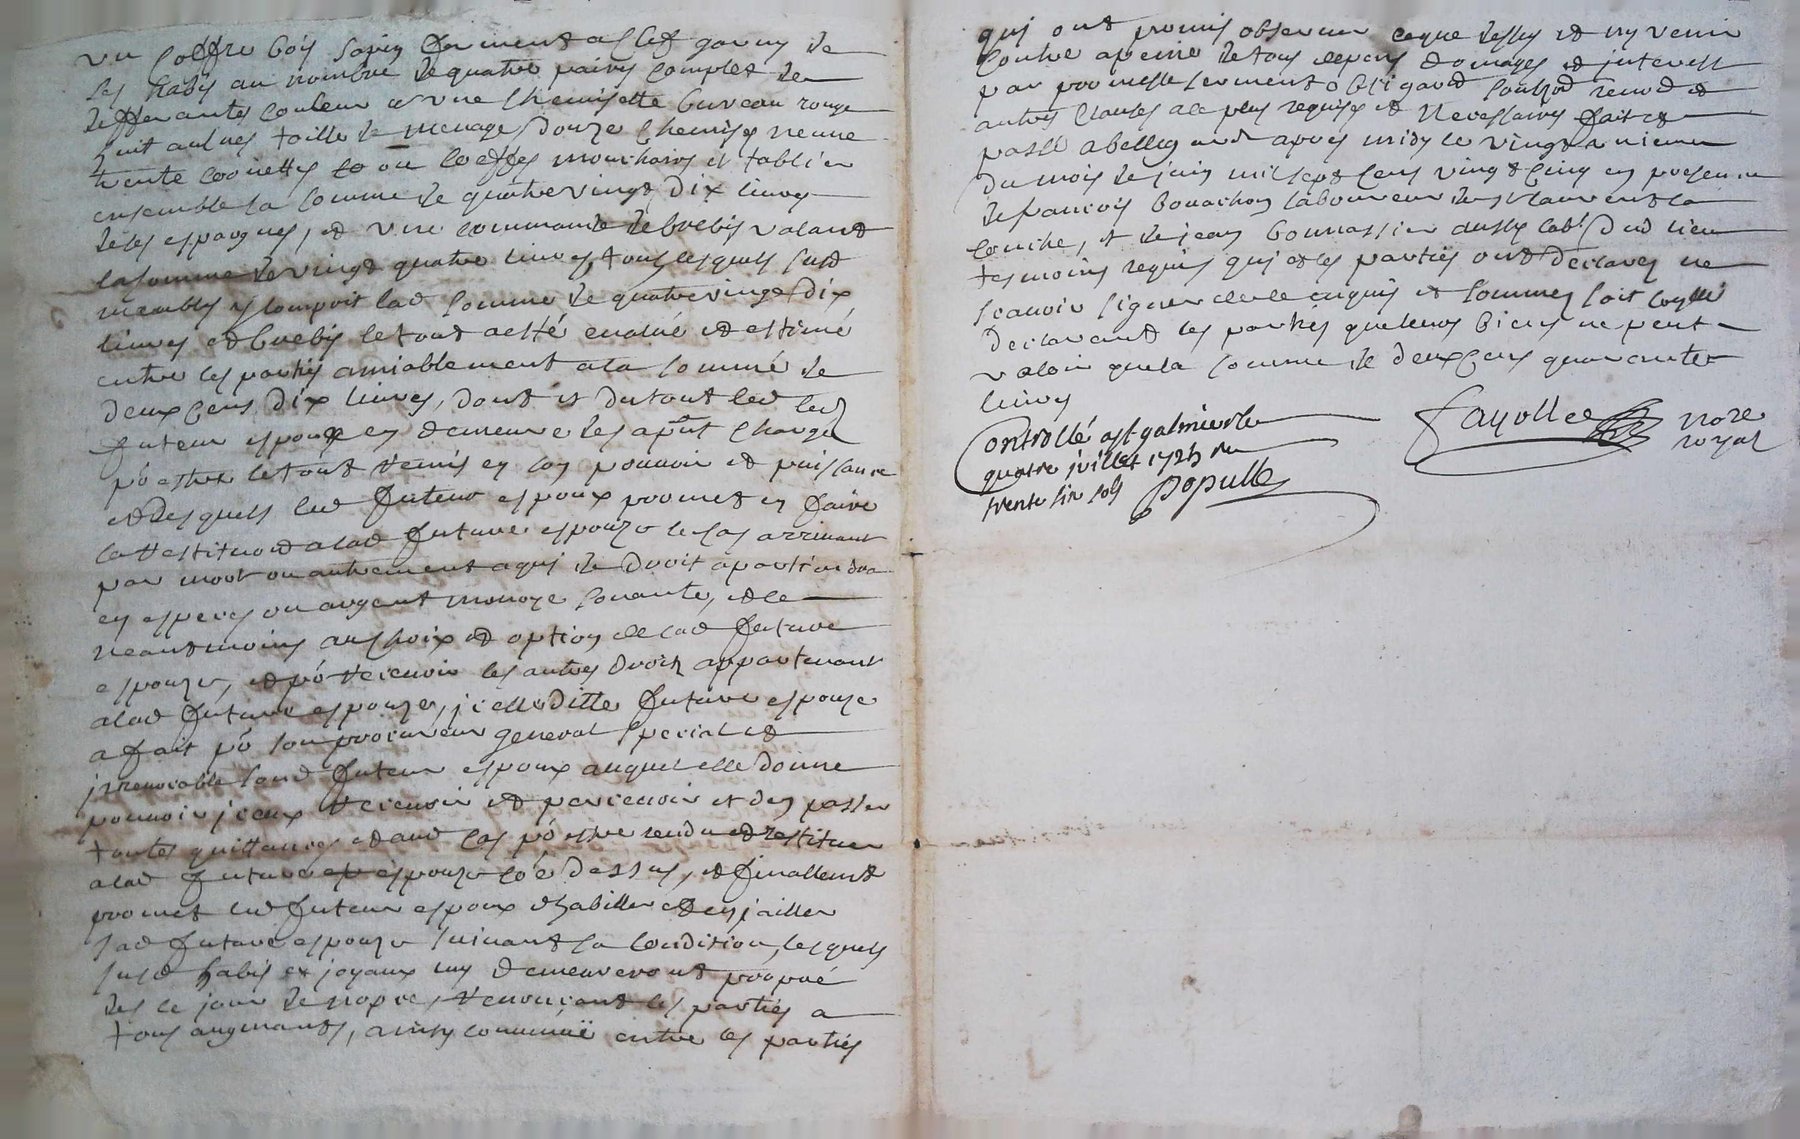 un coffre bois sapin fermant a clef garny de
ses habis au nombre de quatre pairs complet de
differantes couleur et une chemisette bureau rouge
huit aulnes toille de menage, douze chemises neuve
trente coeiffes ou coeffes mouchoirs et tablier
ensemble la somme de quatre vingt dix livres
de ses espargnes, et une commande de brebis valant
la somme de vingt quatre livres, tous lesquels susd
meubles y compris lad somme de quatre vingt dix
livres et brebis le tout a esté evalué et estimé
entre les parties amiablement a la somme de
deux cens dix livres, dont et du tout led
futeur espoux en demeure des apnt chargé
po estre le tout remis en son pouvoir et puissance
et desquels led futeur espoux promet en faire
la restitution a lad future espouze le cas arrivant
par mort ou autrement a qui de droit apartiendra
en especes ou argent monoye sonante, et ce
neantmoins au choix et option de lad future
espouze, et po recevoir les autres droits appartenant
a lad future espouze, icelle ditte future espouze
a fait po son procureur general special et
irrevocable led futeur espoux auquel elle donne
pouvoir iceux recevoir et percevoir et d'en passer
toutes quittances et aud cas po estre rendu et restituer
a lad future espouze co e dessus, et finallemt
promet led futeur espoux d'habiller et enjailler
sad future espouze suivant sa condition, lesquels
susd habis et joyaux luy demeureront propre
des le jour de nopce, renonçant les parties a
tous augmants, ainsy convenu entre les parties
qui ont promis observer ce que dessus et ny venir
contre a peine de tous depens domages et interest
par promesse serment obligaon soubzon renon et
autres clauses a ce plus requises et necessaires fait et
passé a bellegarde apres midy le vingt a nieme
du mois de juin mil sept cens vingt cinq en presence
de francois bouachon laboureur de st laurent la
conche, et de jean bonnassier aussy labr dud lieu
tesmoins requis qui et les parties ont declarez ne
scavoir signer de ce enquis et sommez soit coulle
declarant les parties que leurs biens ne peut
valoir que la somme de deux cens quarente
livres
Controllé a st galmier le
quatre juillet 1725 Ru
trente six sols Populle
Fayolle nore
royal